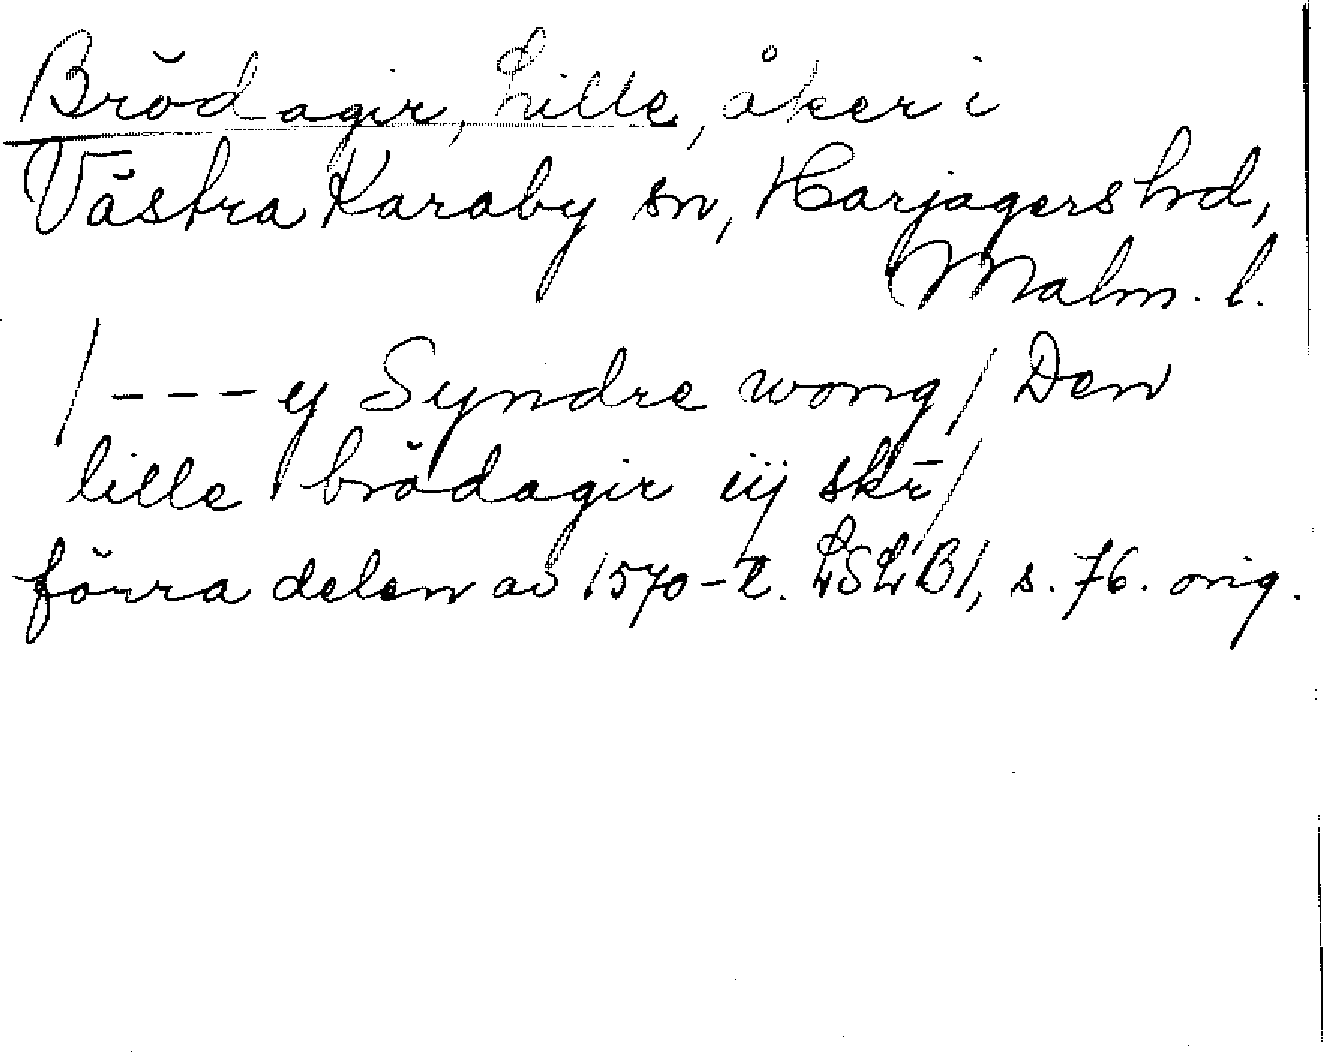 Brödagir, Lille, åker i
Västra Karaby sn, Harjagers hd,
Malm. l.
/ --- ij Syndre wong / Den
lille brödagir iij skr /
förra delen av 1570-t. LSLB1, s. 76. orig.